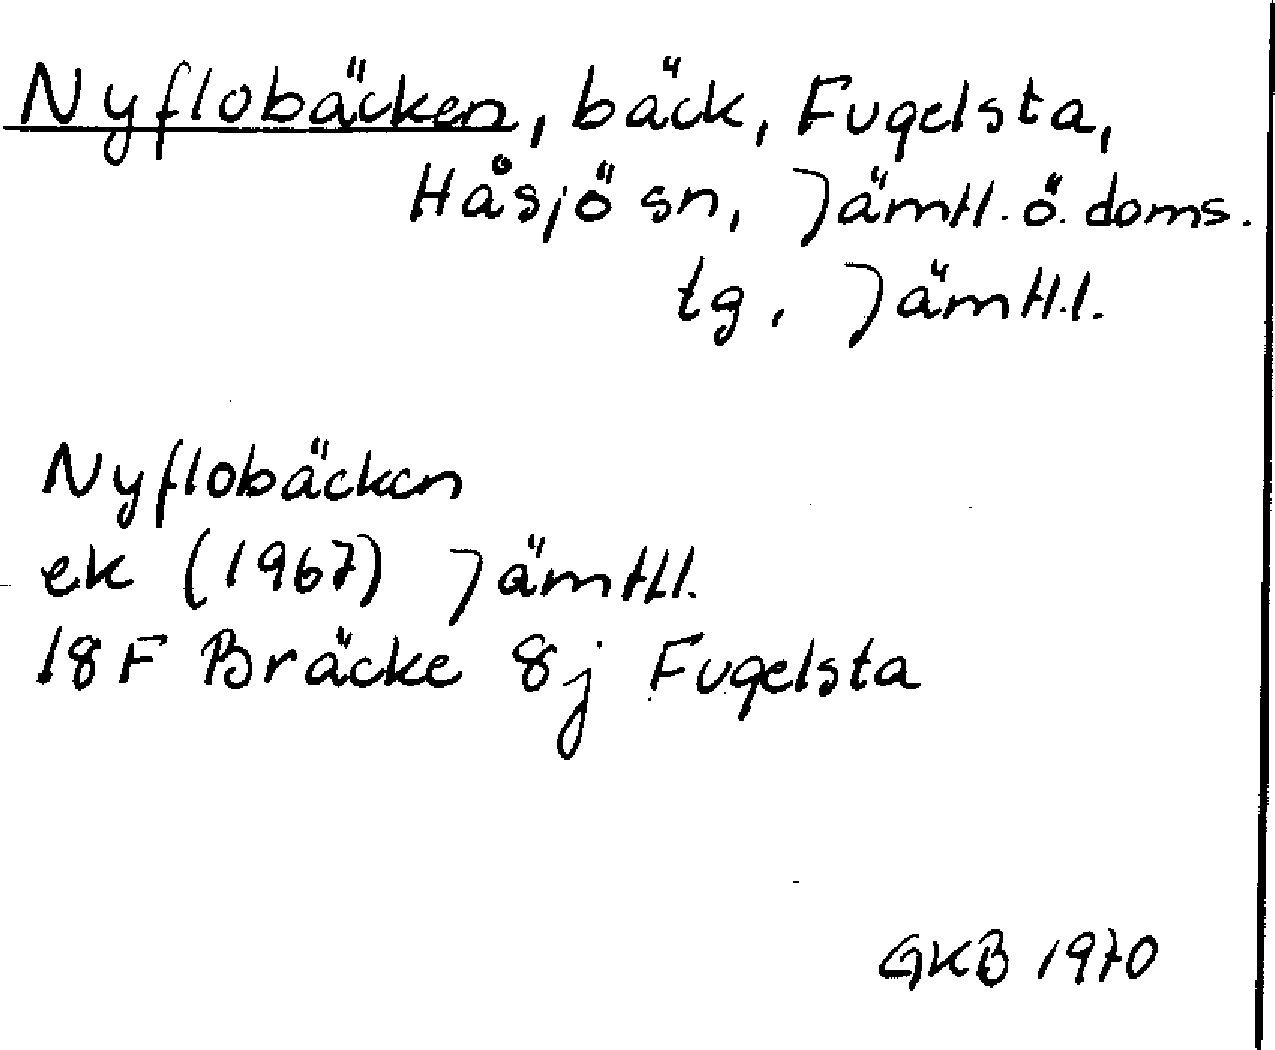 Nyflobäcken, bäck, Fugelsta,
Håsjö sn, Jämtl. ö. doms.
tg, Jämtl.l.
Nyflobäcken
ek (1967) Jämtl.l.
18F Bräcke 8j Fugelsta
GKB 1970